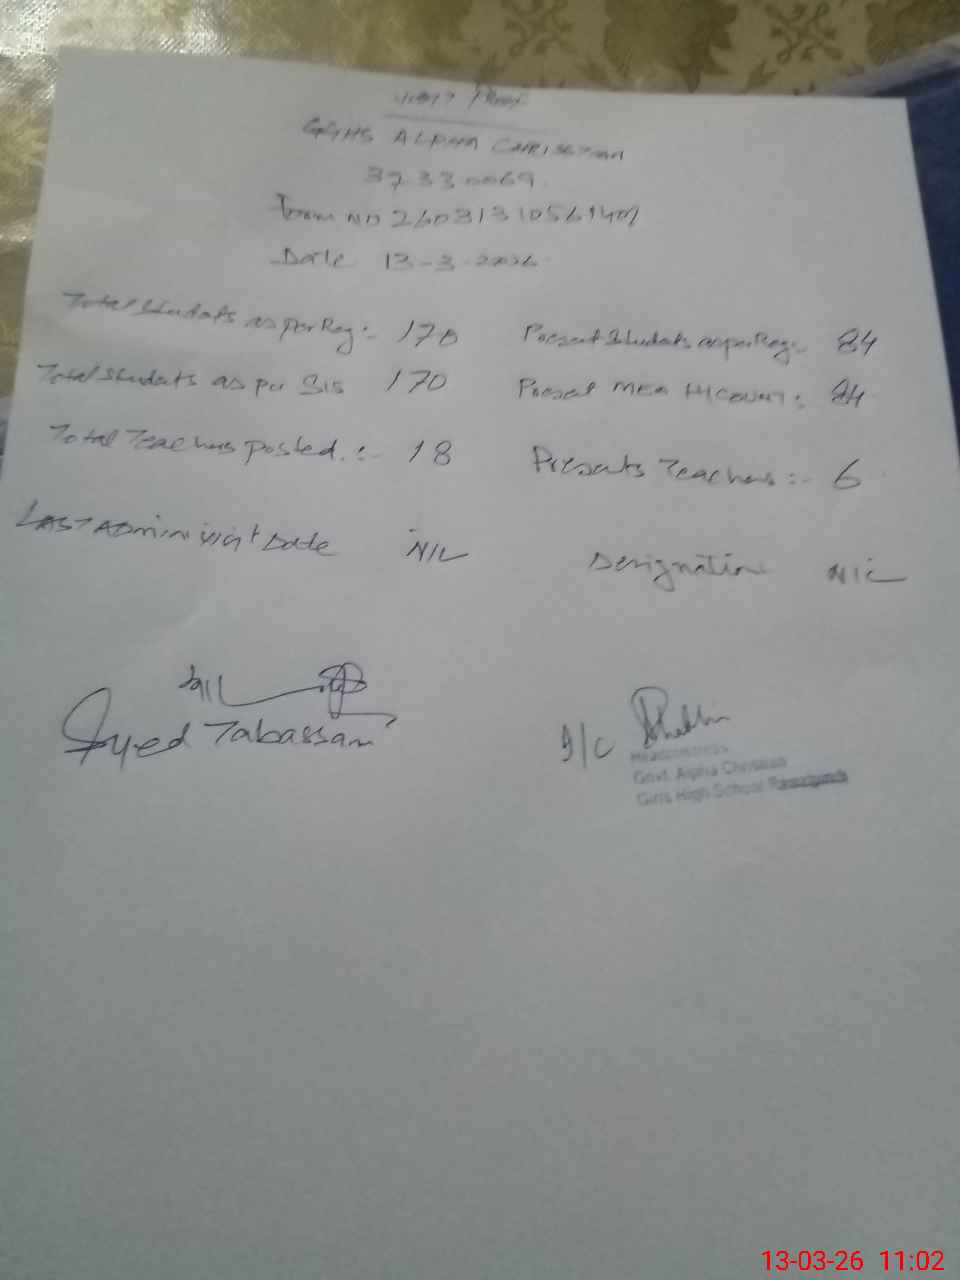 Visit Proof
GGHS ALPHA CHRISTIAN
37330069
Form No 26031310561407
Date 13-3-2026
Total Students as per Reg:- 170 Present Students as per Reg:- 84
Total Students as per SIS 170 Present MEA H/COUNT:- 84
Total Teachers Posted.:- 18 Presents Teachers:- 6
LAST ADMIN Visit Date NIL Designation NIL
Syed Tabassam
I/C
Headmistress
Govt. Alpha Christian
Girls High School
13-03-26 11:02